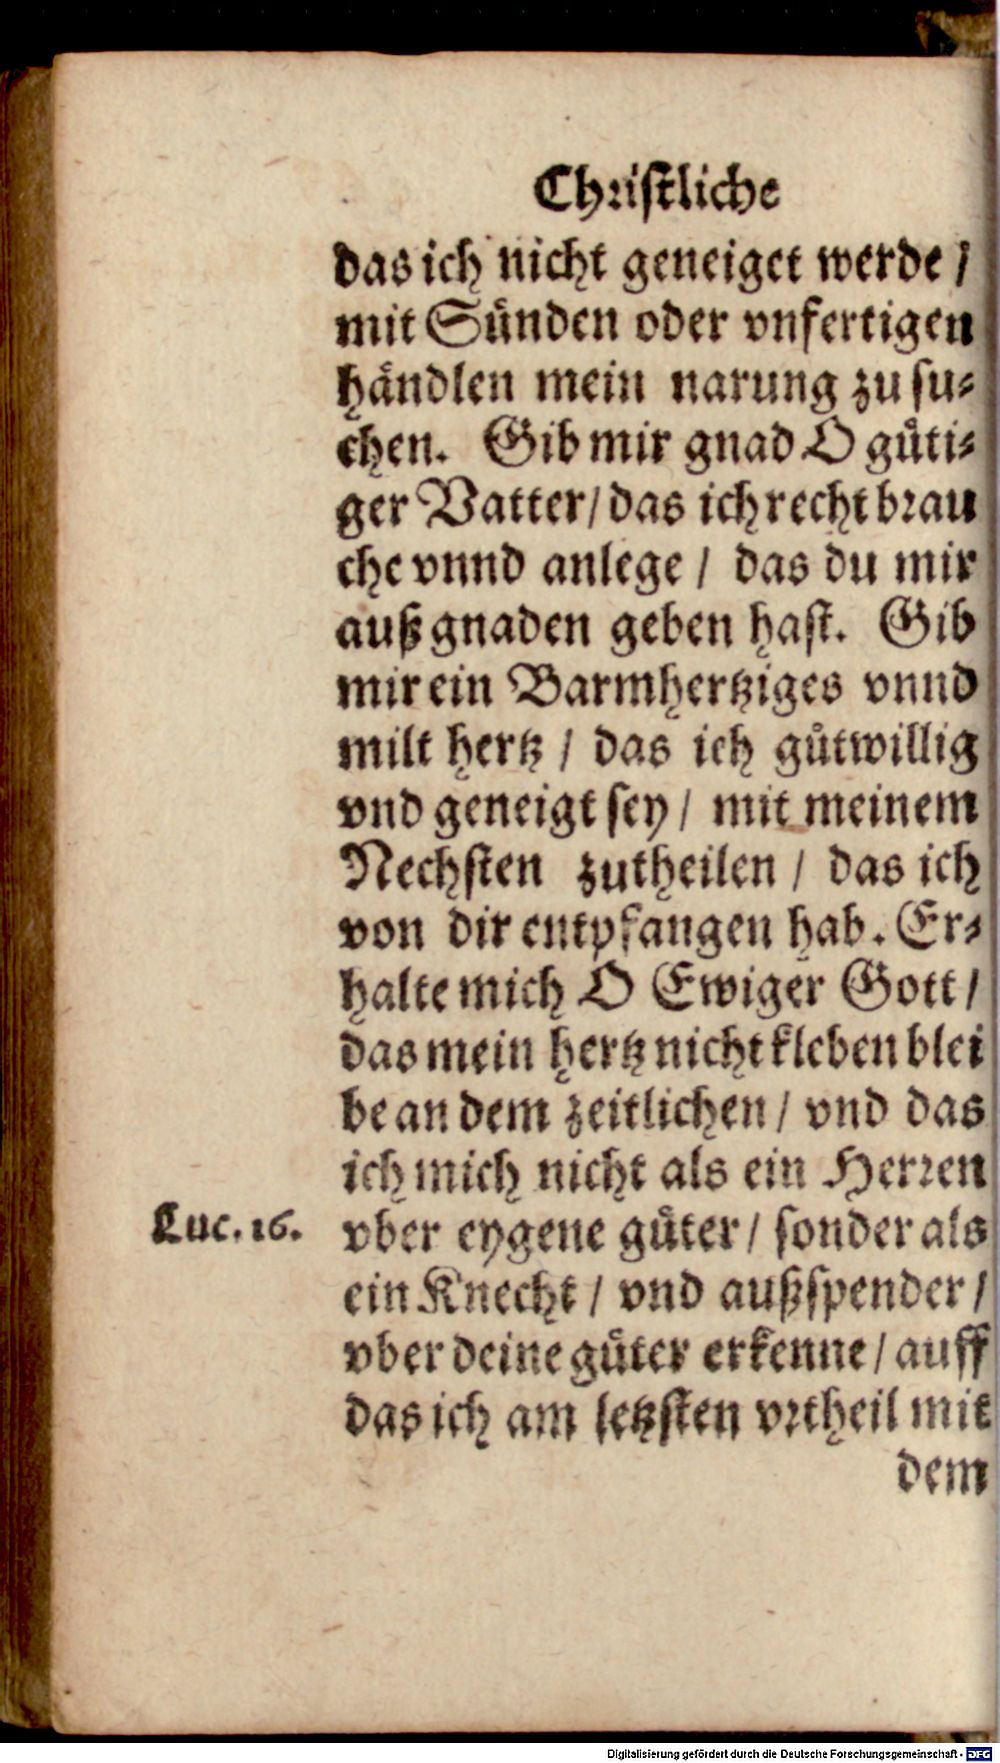 Christliche
das ich nicht geneiget werde /
mit Sünden oder vnfertigen
händlen mein narung zu su-
chen. Gib mir gnad O güti-
ger Vatter / das ich recht brau
che vnnd anlege / das du mir
auß gnaden geben hast. Gib
mir ein Barmhertziges vnnd
milt hertz / das ich gůtwillig
vnd geneigt sey / mit meinem
Nechsten zutheilen / das ich
von dir entpfangen hab. Er-
halte mich O Ewiger Gott /
das mein hertz nicht kleben blei
be an dem zeitlichen / vnd das
ich mich nicht als ein Herren
Luc. 16. vber eygene güter / sonder als
ein Knecht / vnd außspender /
vber deine güter erkenne / auff
das ich am letzsten vrtheil mit
dem
Digitalisierung gefördert durch die Deutsche Forschungsgemeinschaft - DFG